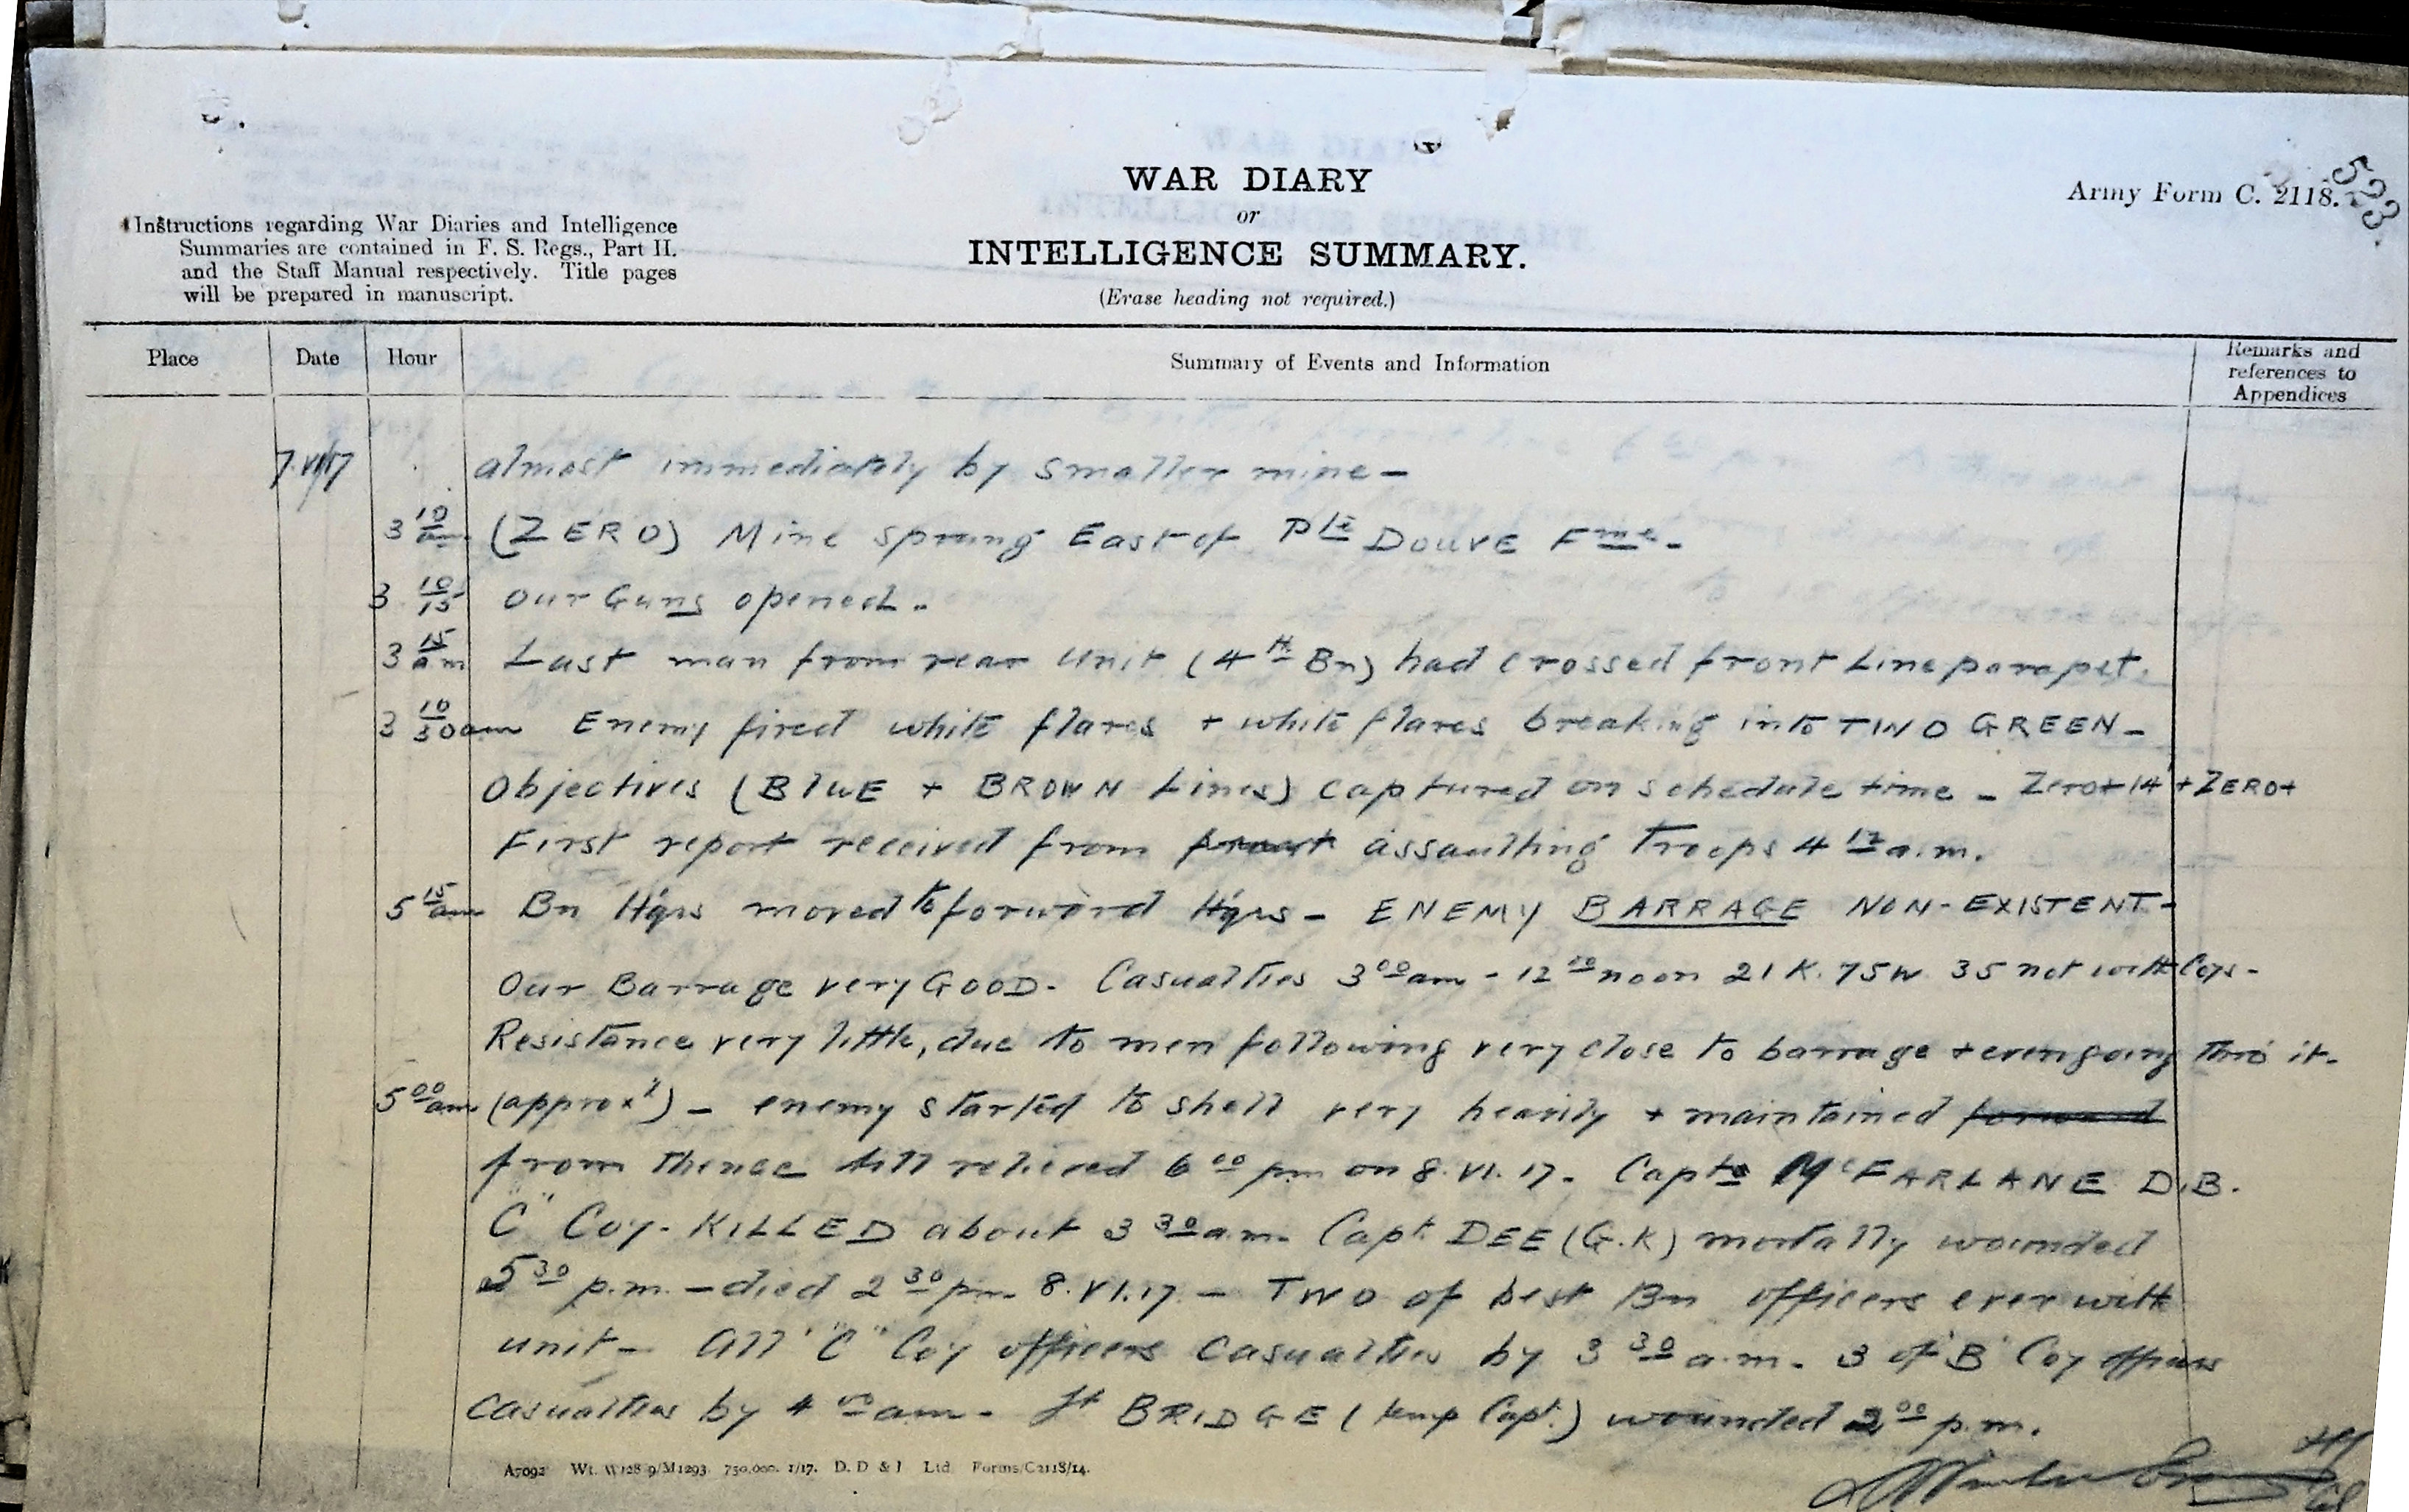 523.
Army Form C. 2118.
WAR DIARY
or
INTELLIGENCE SUMMARY.
(Erase heading not required.)
Instructions regarding War Diaries and Intelligence
Summaries are contained in F. S. Regs., Part II.
and the Staff Manual respectively. Title pages
will be prepared in manuscript.
Place Date Hour Summary of Events and Information Remarks and references to Appendices
7.VI.17 almost immediately by smaller mine –
3 10 am (ZERO) Mine sprung East of Pte DOUVE Fme –
3 10/15 Our Guns opened –
3 15 am Last man from rear unit (4th Bn) had crossed front Line parapet.
3 10/30 am Enemy fired white flares + white flares breaking into TWO GREEN –
Objectives (BLUE + BROWN Lines) captured on schedule time – Zero + 14 + ZERO +
First report received from assaulting Troops 4 17 a.m.
5 15 am Bn Hqrs moved to forward Hqrs – ENEMY BARRAGE NON-EXISTENT –
Our Barrage very GOOD – Casualties 3 00 am – 12 noon 21 K. 75 W. 35 not with Coys –
Resistance very little, due to men following very close to barrage + even going thro' it –
5 00 am (approx) – enemy started to shell very heavily + maintained forward
from thence till relieved 6 00 pm on 8.VI.17. Capt McFARLANE D.B.
"C" Coy – KILLED about 3 30 a.m. Capt DEE (G.K) mortally wounded
5 30 p.m. – died 2 30 pm 8.VI.17 – TWO of best Bn officers ever with
unit – All "C" Coy officers casualties by 3 30 a.m. 3 of "B" Coy officers
casualties by 4 00 am – Lt BRIDGE (temp Capt.) wounded 2 00 p.m.
A7092 Wt. W128 9/M1293 750,000. 1/17. D. D & L Ltd. Forms/C2118/14.